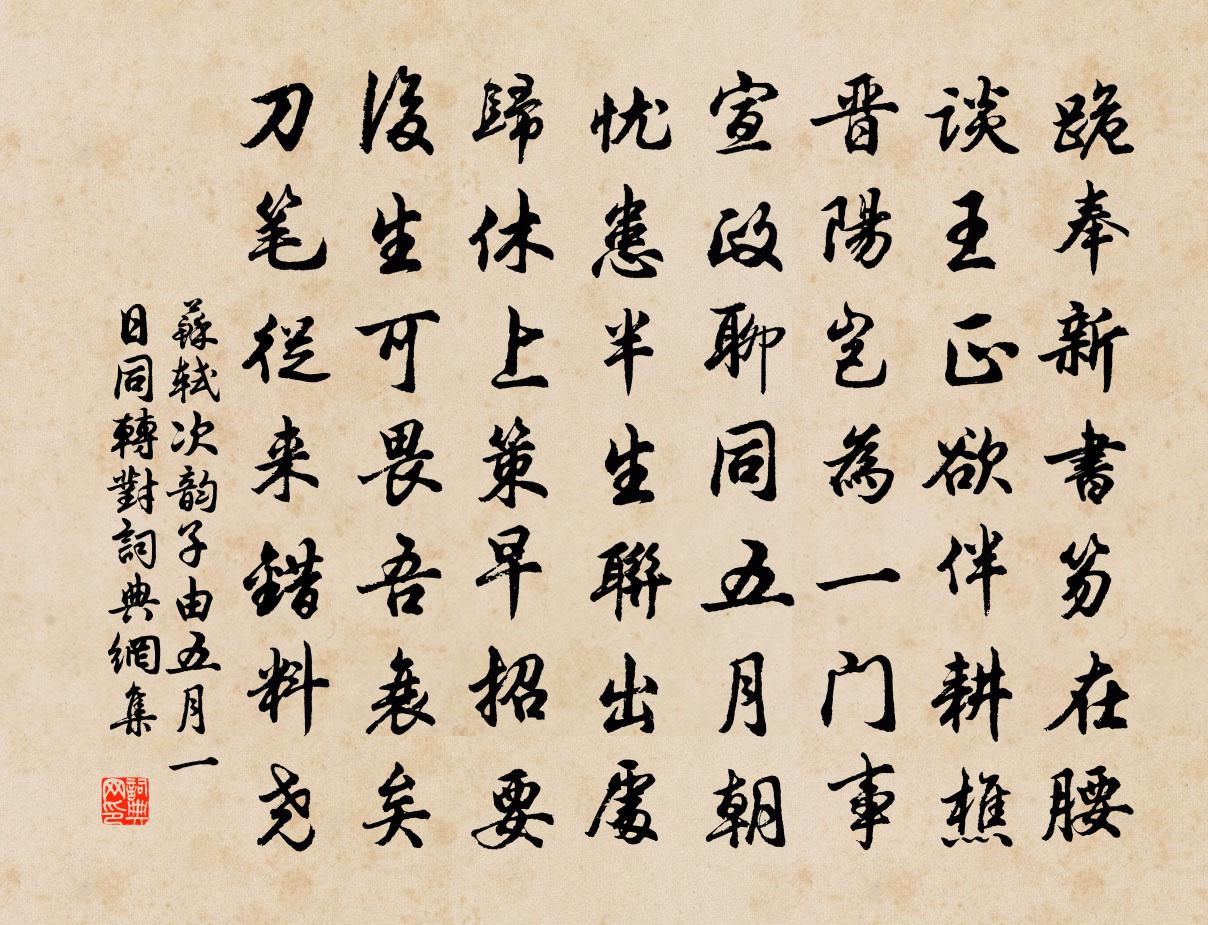 跪奉新書笏在腰
谈王正欲伴耕樵
晋陽岂為一门事
宣政聊同五月朝
忧患半生聯出處
歸休上策早招要
後生可畏吾衰矣
刀笔從来錯料尧
蘇轼次韵子由五月一
日同轉對詞典網集
詞典
网印